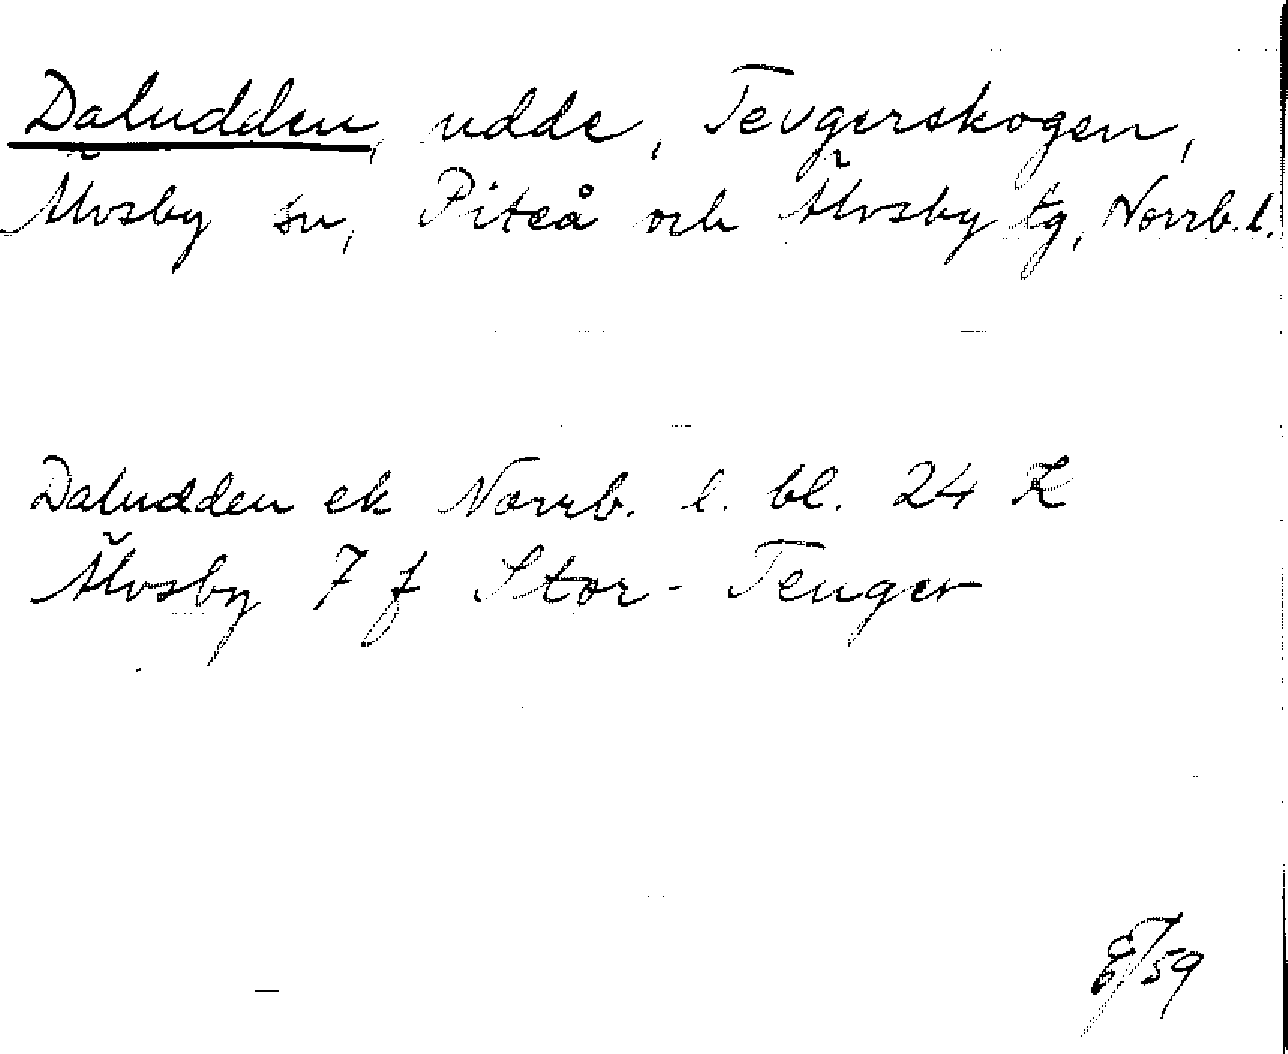 Daludden, udde, Tevgerskogen,
Älvsby sn, Piteå och Älvsby tg, Norrb. l.
Daludden ek Norrb. l. bl. 24 K
Älvsby 7 f Stor-Teuger
/59